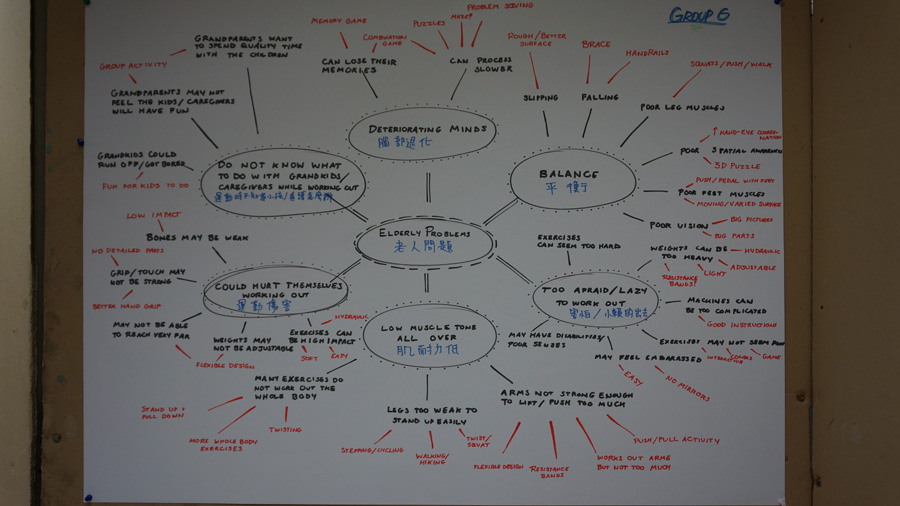 GROUP 6
MEMORY GAME
COMBINATION
GAME
PUZZLES
MAZE?
PROBLEM SOLVING
CAN LOSE THEIR
MEMORIES
CAN PROCESS
SLOWER
DETERIORATING MINDS
腦部退化
GROUP ACTIVITY
GRANDPARENTS WANT
TO SPEND QUALITY TIME
WITH THE CHILDREN
GRANDPARENTS MAY NOT
FEEL THE KIDS/CAREGIVERS
WILL HAVE FUN
GRANDKIDS COULD
RUN OFF/GOT BORED
FUN FOR KIDS TO DO
DO NOT KNOW WHAT
TO DO WITH GRANDKIDS/
CAREGIVERS WHILE WORKING OUT
ROUGH/BETTER
SURFACE
BRACE
HANDRAILS
SQUATS/PUSH/WALK
SLIPPING
FALLING
POOR LEG MUSCLES
↑ HAND-EYE COORDI-
NATION
POOR SPATIAL AWARENESS
3D PUZZLE
PUSH/PEDAL WITH FEET
POOR FEET MUSCLES
MOVING/VARIED SURFACE
POOR VISION
BIG PICTURES
BIG PARTS
BALANCE
平衡
ELDERLY PROBLEMS
老人問題
LOW IMPACT
BONES MAY BE WEAK
NO DETAILED PARTS
GRIP/TOUCH MAY
NOT BE STRONG
BETTER HAND GRIP
MAY NOT BE ABLE
TO REACH VERY FAR
FLEXIBLE DESIGN
WEIGHTS MAY
NOT BE ADJUSTABLE
EXERCISES CAN
BE HIGH IMPACT
HYDRAULIC
SOFT
EASY
COULD HURT THEMSELVES
WORKING OUT
運動傷害
EXERCISES
CAN SEEM TOO HARD
WEIGHTS CAN BE
TOO HEAVY
HYDRAULIC
ADJUSTABLE
LIGHT
RESISTANCE
BANDS!
MACHINES CAN
BE TOO COMPLICATED
GOOD INSTRUCTIONS
EXERCISES MAY NOT SEEM FUN
INTERACTIVE
COMBOS
GAME
MAY FEEL EMBARASSED
EASY
NO MIRRORS
MAY HAVE DISABILITIES/
POOR SENSES
TOO AFRAID/LAZY
TO WORK OUT
LOW MUSCLE TONE
ALL OVER
肌耐力低
MANY EXERCISES DO
NOT WORK OUT THE
WHOLE BODY
STAND UP +
PULL DOWN
MORE WHOLE BODY
EXERCISES
TWISTING
LEGS TOO WEAK TO
STAND UP EASILY
STEPPING/CYCLING
WALKING/
HIKING
TWIST/
SQUAT
ARMS NOT STRONG ENOUGH
TO LIFT/PUSH TOO MUCH
FLEXIBLE DESIGN
RESISTANCE
BANDS
WORKS OUT ARMS
BUT NOT TOO MUCH
PUSH/PULL ACTIVITY